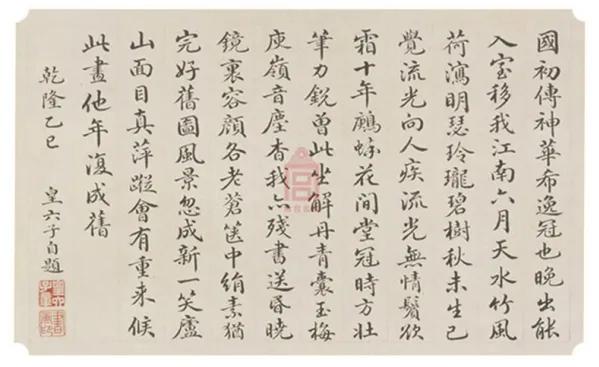 國初傳神華希逸冠也晚出能
入室移我江南六月天水竹風
荷瀉明瑟玲瓏碧樹秋未生已
覺流光向人疾流光無情鬢欲
霜十年花間堂冠時方壯
筆力銳曾此坐解丹青囊玉梅
庾嶺音塵杳我亦殘書送昏曉
鏡裏容顏各老蒼篋中絹素猶
完好舊圖風景忽成新一笑廬
山面目真萍蹤會有重來候
此畫他年復成舊
乾隆乙巳 皇六子自題